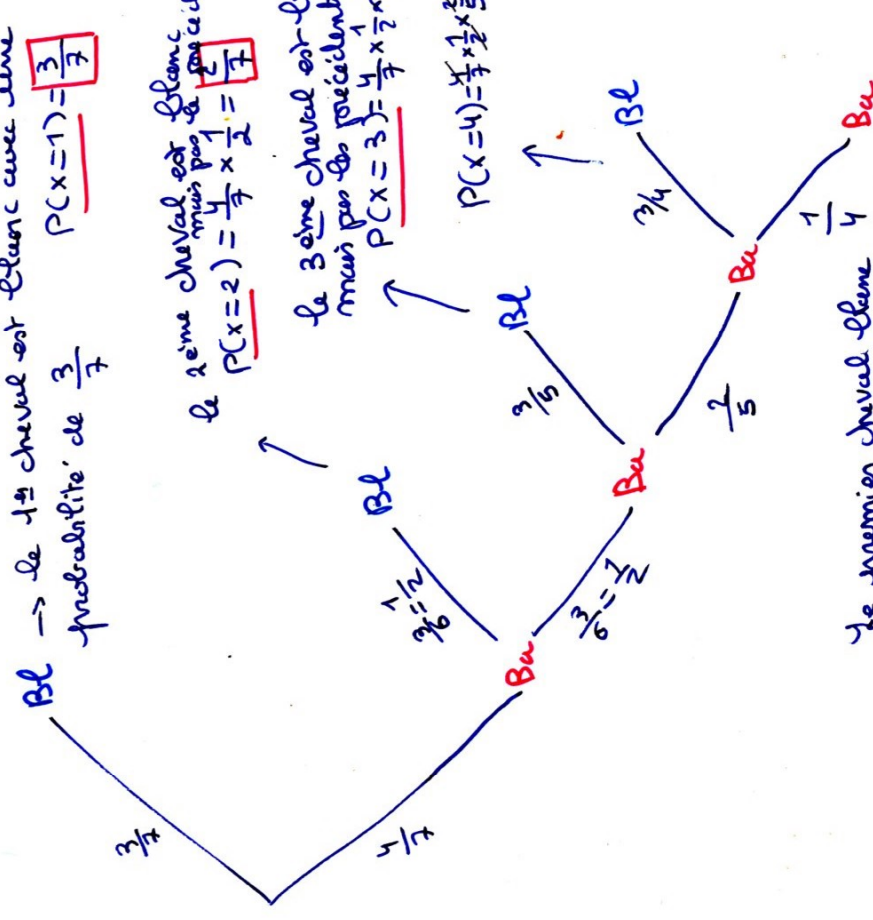 Bl → le 1er cheval est blanc avec une
probabilité de 3/7
P(X=1) = 3/7
le 2ème cheval est blanc
mais pas le
P(X=2) = 4/7 × 1/2 = 2/7
le 3ème cheval est
mais pas les précédents
P(X=3) = 4/7 × 1/2 ×
P(X=4) = 4/7 × 1/2 ×
3/7
4/7
Bl
3/6 = 1/2
Ba
3/6 = 1/2
Bl
3/5
Ba
2/5
Bl
3/4
Ba
1/4
Ba
premier cheval